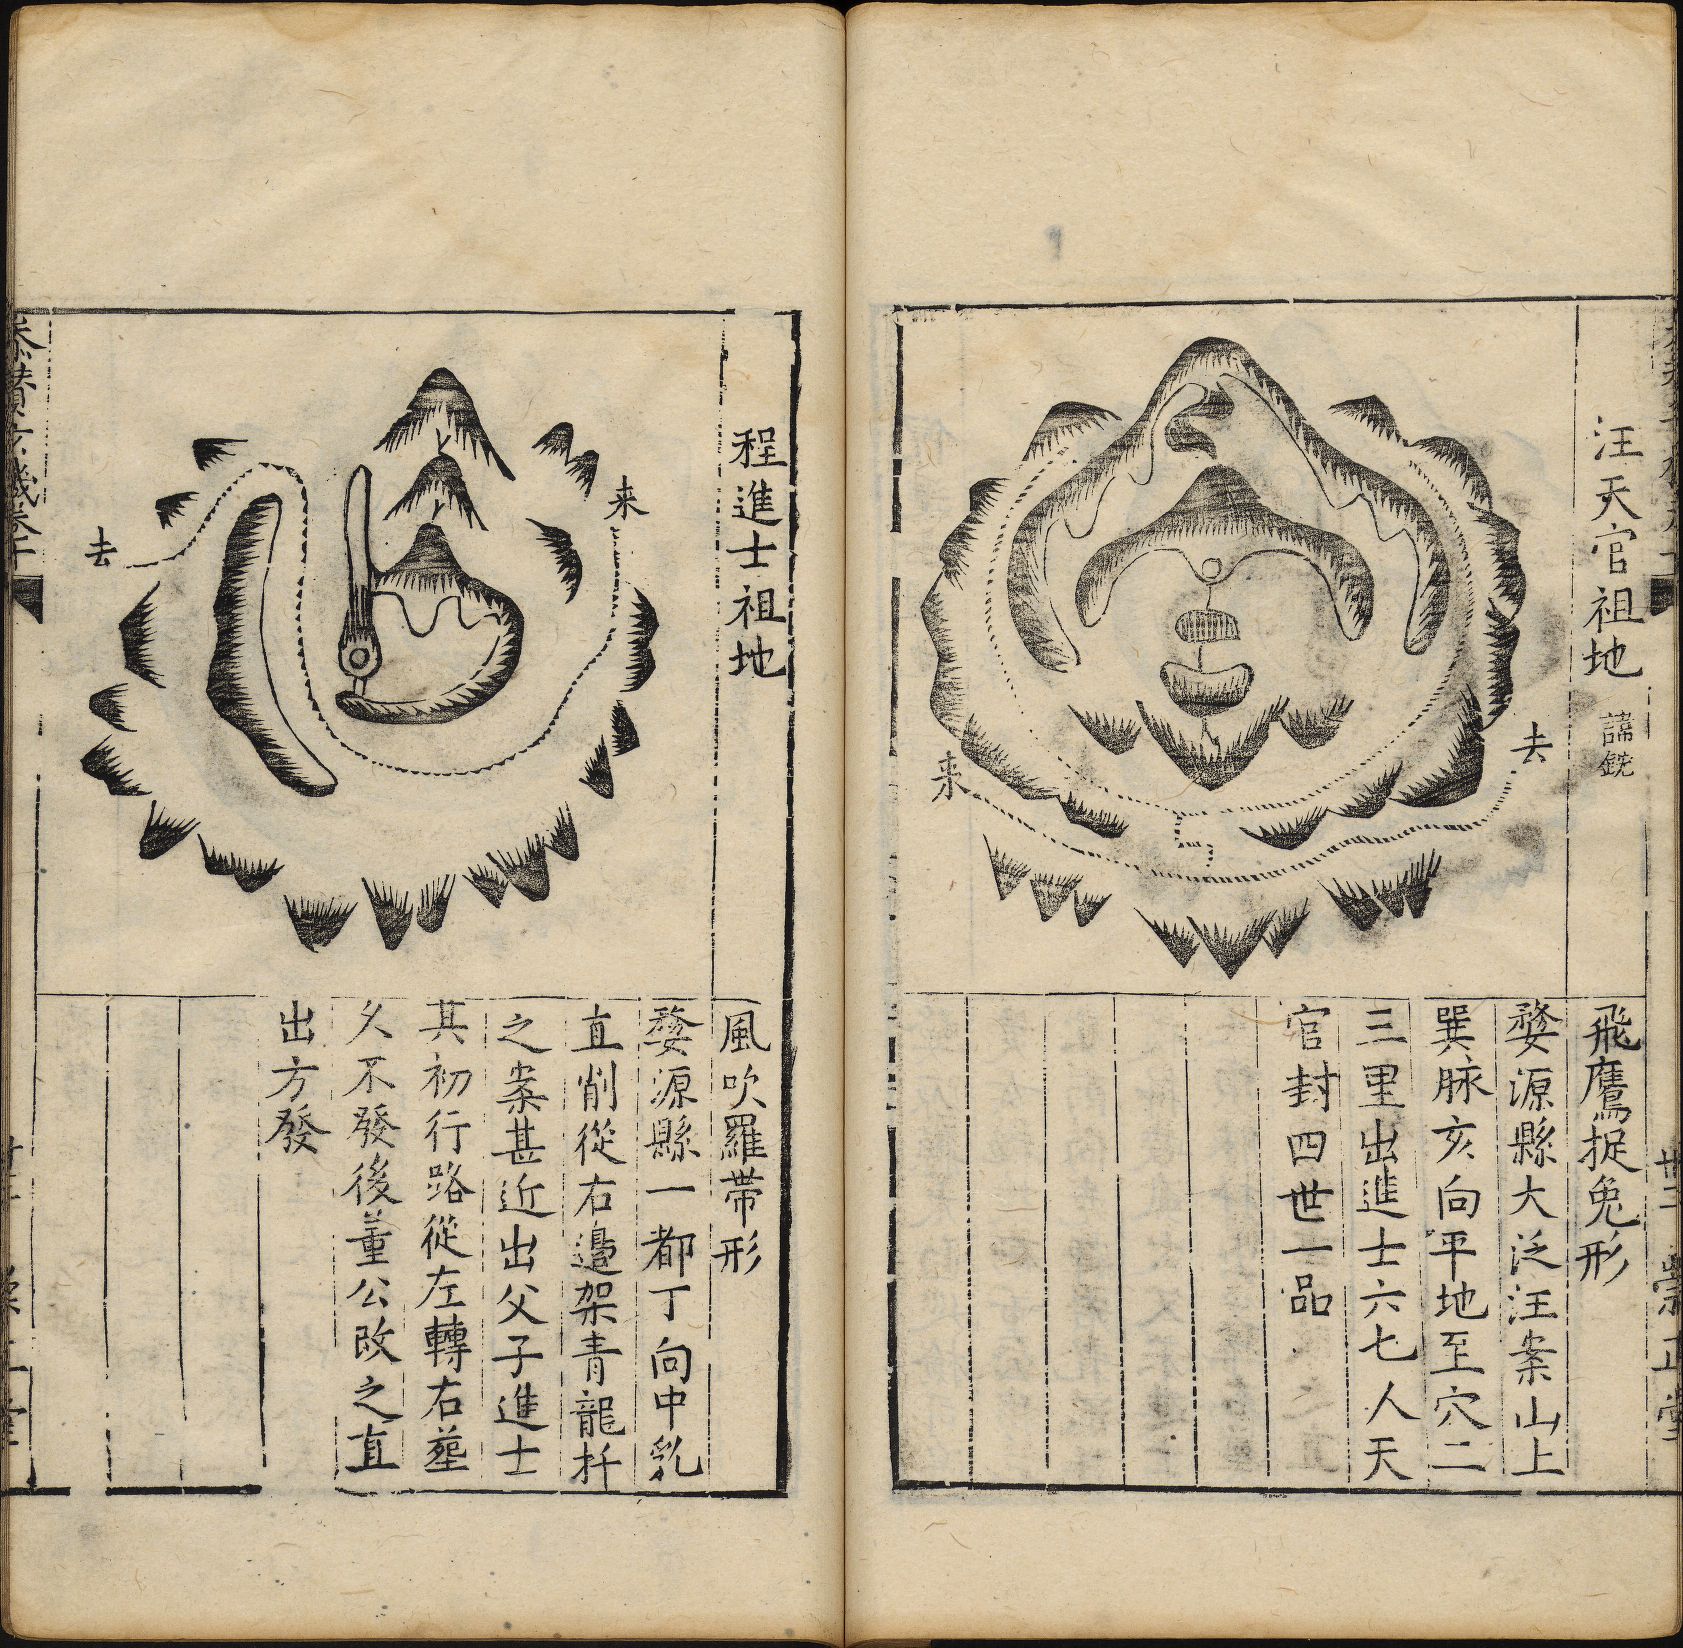 汪天官祖地 諱鋐
来
去
飛鷹捉兔形
婺源縣大泛汪案山上
巽脉亥向平地至穴二
三里出進士六七人天
官封四世一品
崇正堂
程進士祖地
来
去
風吹羅帶形
婺源縣一都丁向中乳
直削從右邊架青龍扦
之案甚近出父子進士
其初行路從左轉右塟
久不發後董公改之直
出方發